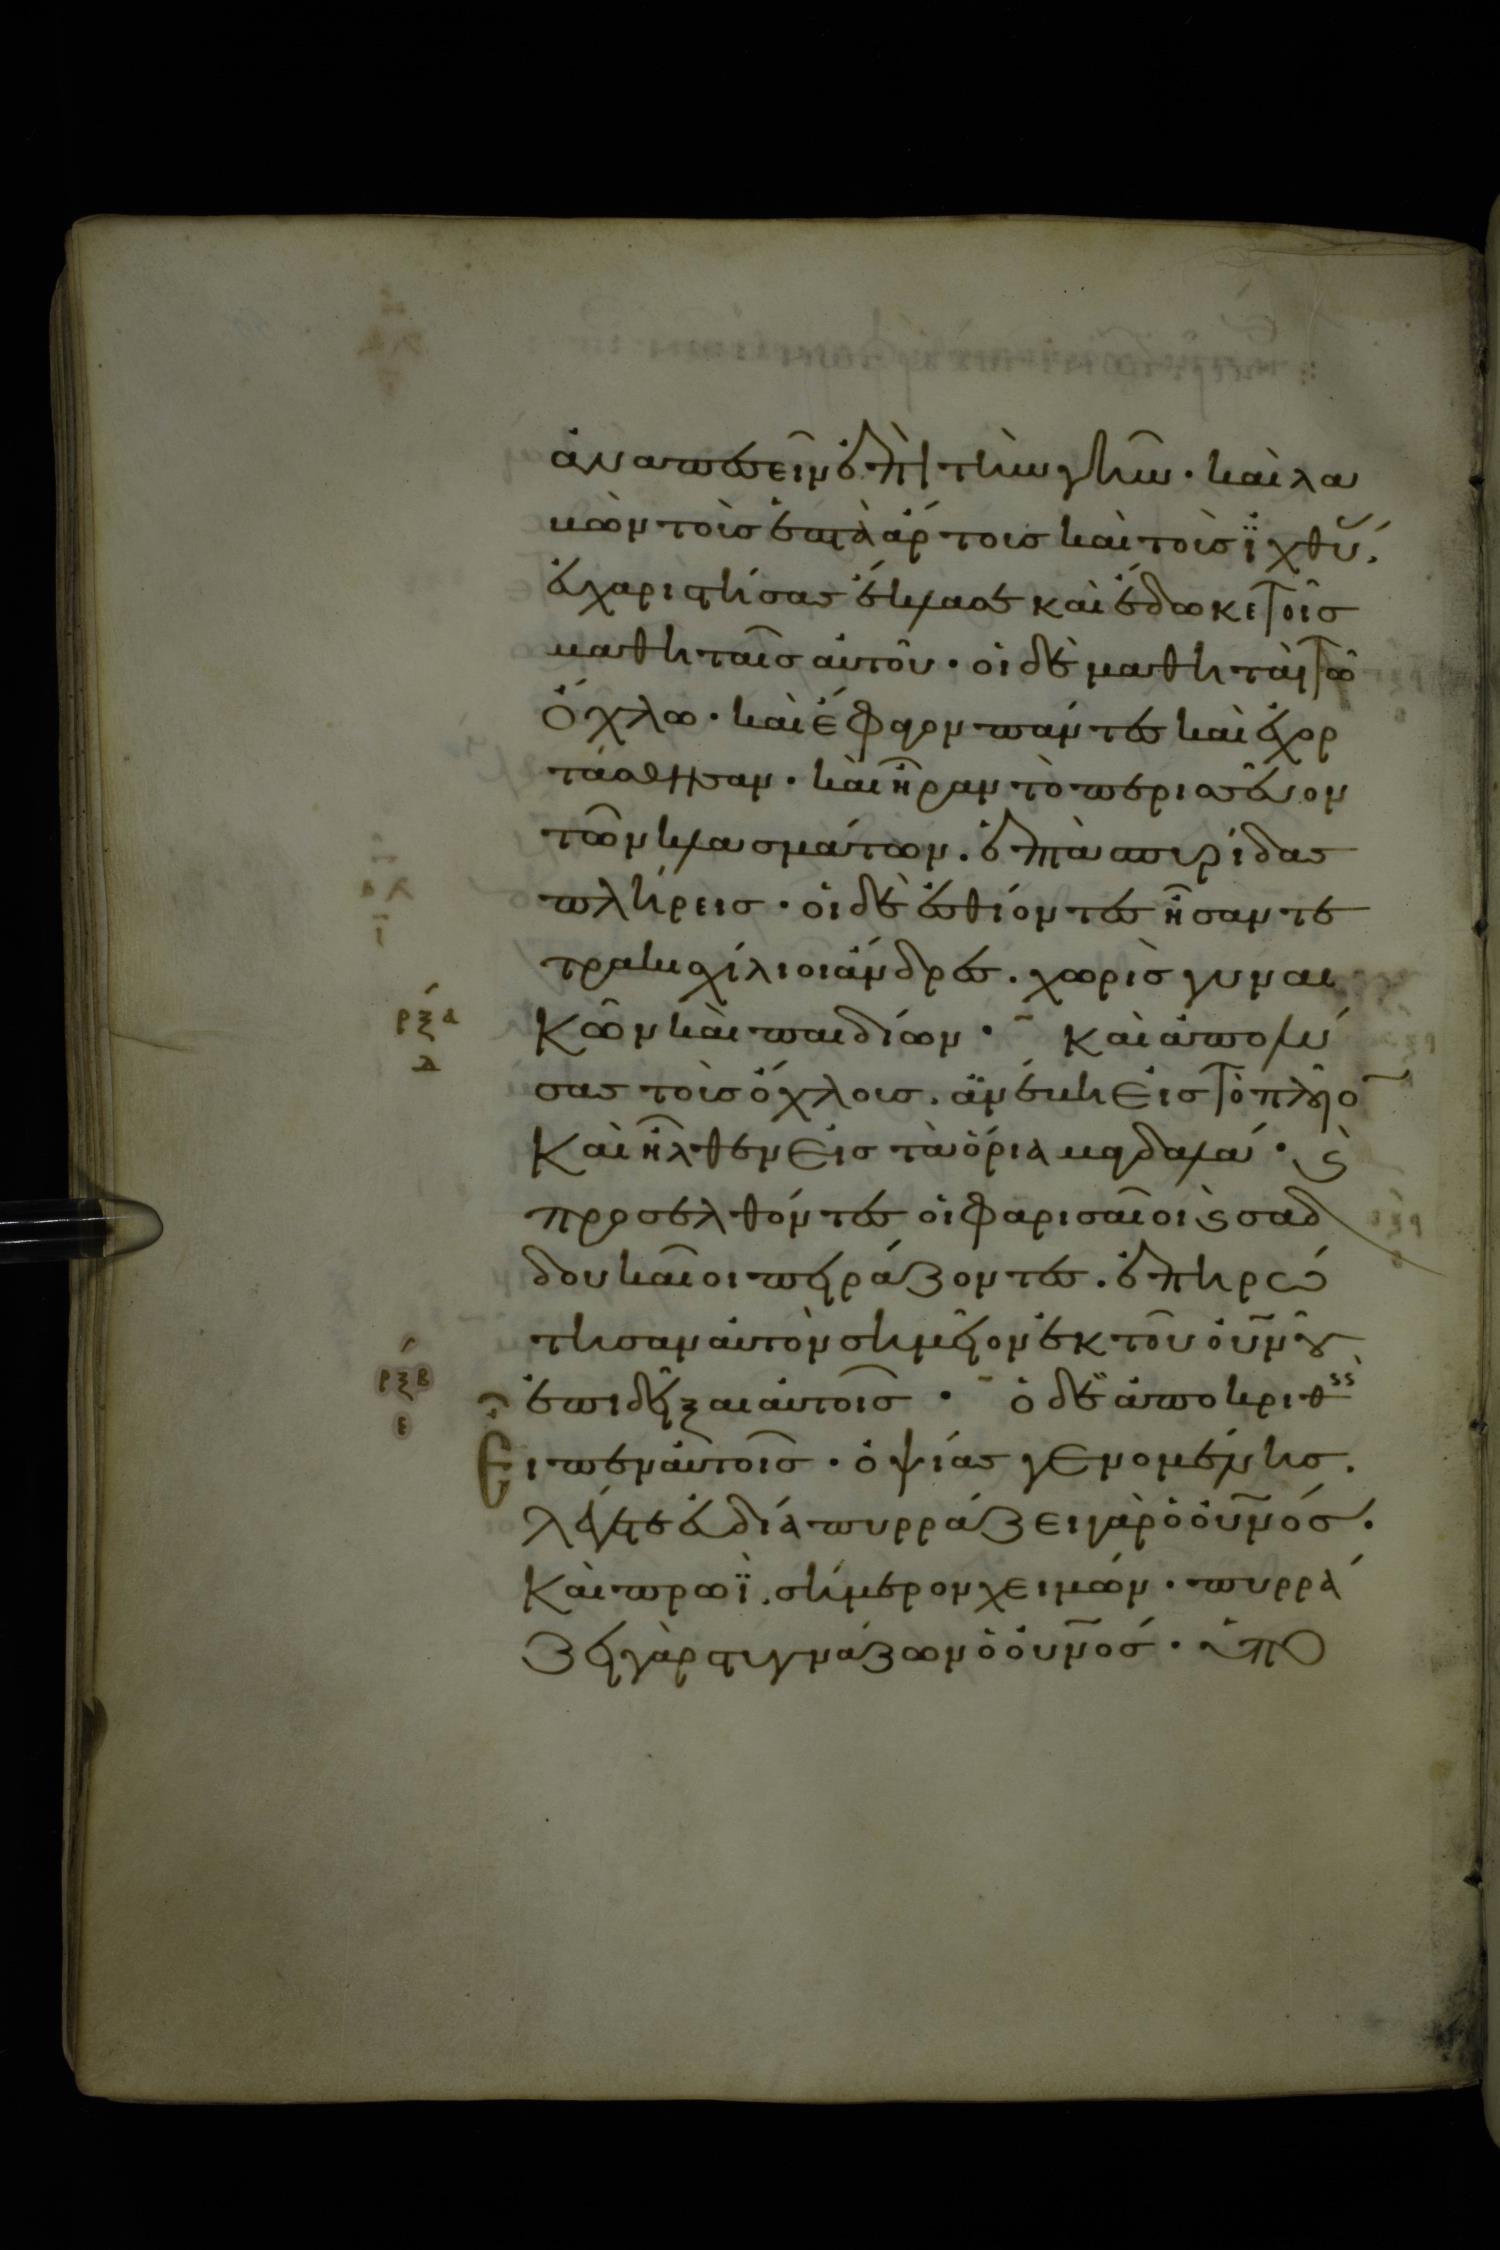 ἀναπεσεῖν ἐπὶ τὴν γῆν · καὶ λα
βὼν τοὺς ἑπτὰ ἄρτους καὶ τοὺς ἰχθύ
εὐχαριστήσας ἔκλασε καὶ ἔδωκε τοῖς
μαθηταῖς αὐτοῦ · οἱ δὲ μαθηταὶ τῶ
ὄχλω · καὶ ἔφαγον πάντες καὶ ἐχορ
τάσθησαν · καὶ ἦραν τὸ περισσεῦον
τῶν κλασμάτων . ἑπτὰ σπυρίδας
πλήρεις · οἱ δὲ ἐσθίοντες ἦσαν τε
τρακισχίλιοι ἄνδρες . χωρὶς γυναι
ρξα
δ
κῶν καὶ παιδίων · καὶ ἀπολύ
σας τοὺς ὄχλους . ἀνέβη εἰς τὸ πλοῖο
καὶ ἦλθεν εἰς τὰ ὅρια μαγδαλά · ϗ
προσελθόντες οἱ φαρισαῖοι ϗ σαδ
δουκαῖοι πειράζοντες . ἐπηρώ
τησαν αὐτὸν σημεῖον ἐκ τοῦ οὐνου
ρξβ
ε
ἐπιδεῖξαι αὐτοῖς · ὁ δὲ ἀποκριθεὶς
εἶπεν αὐτοῖς · ὀψίας γενομένης .
λέγετε εὐδία πυρράζει γὰρ ὁ οὐνός .
καὶ πρωῒ . σήμερον χειμών · πυρρά
ζει γὰρ στυγνάζων ὁ οὐνός · ὑπο